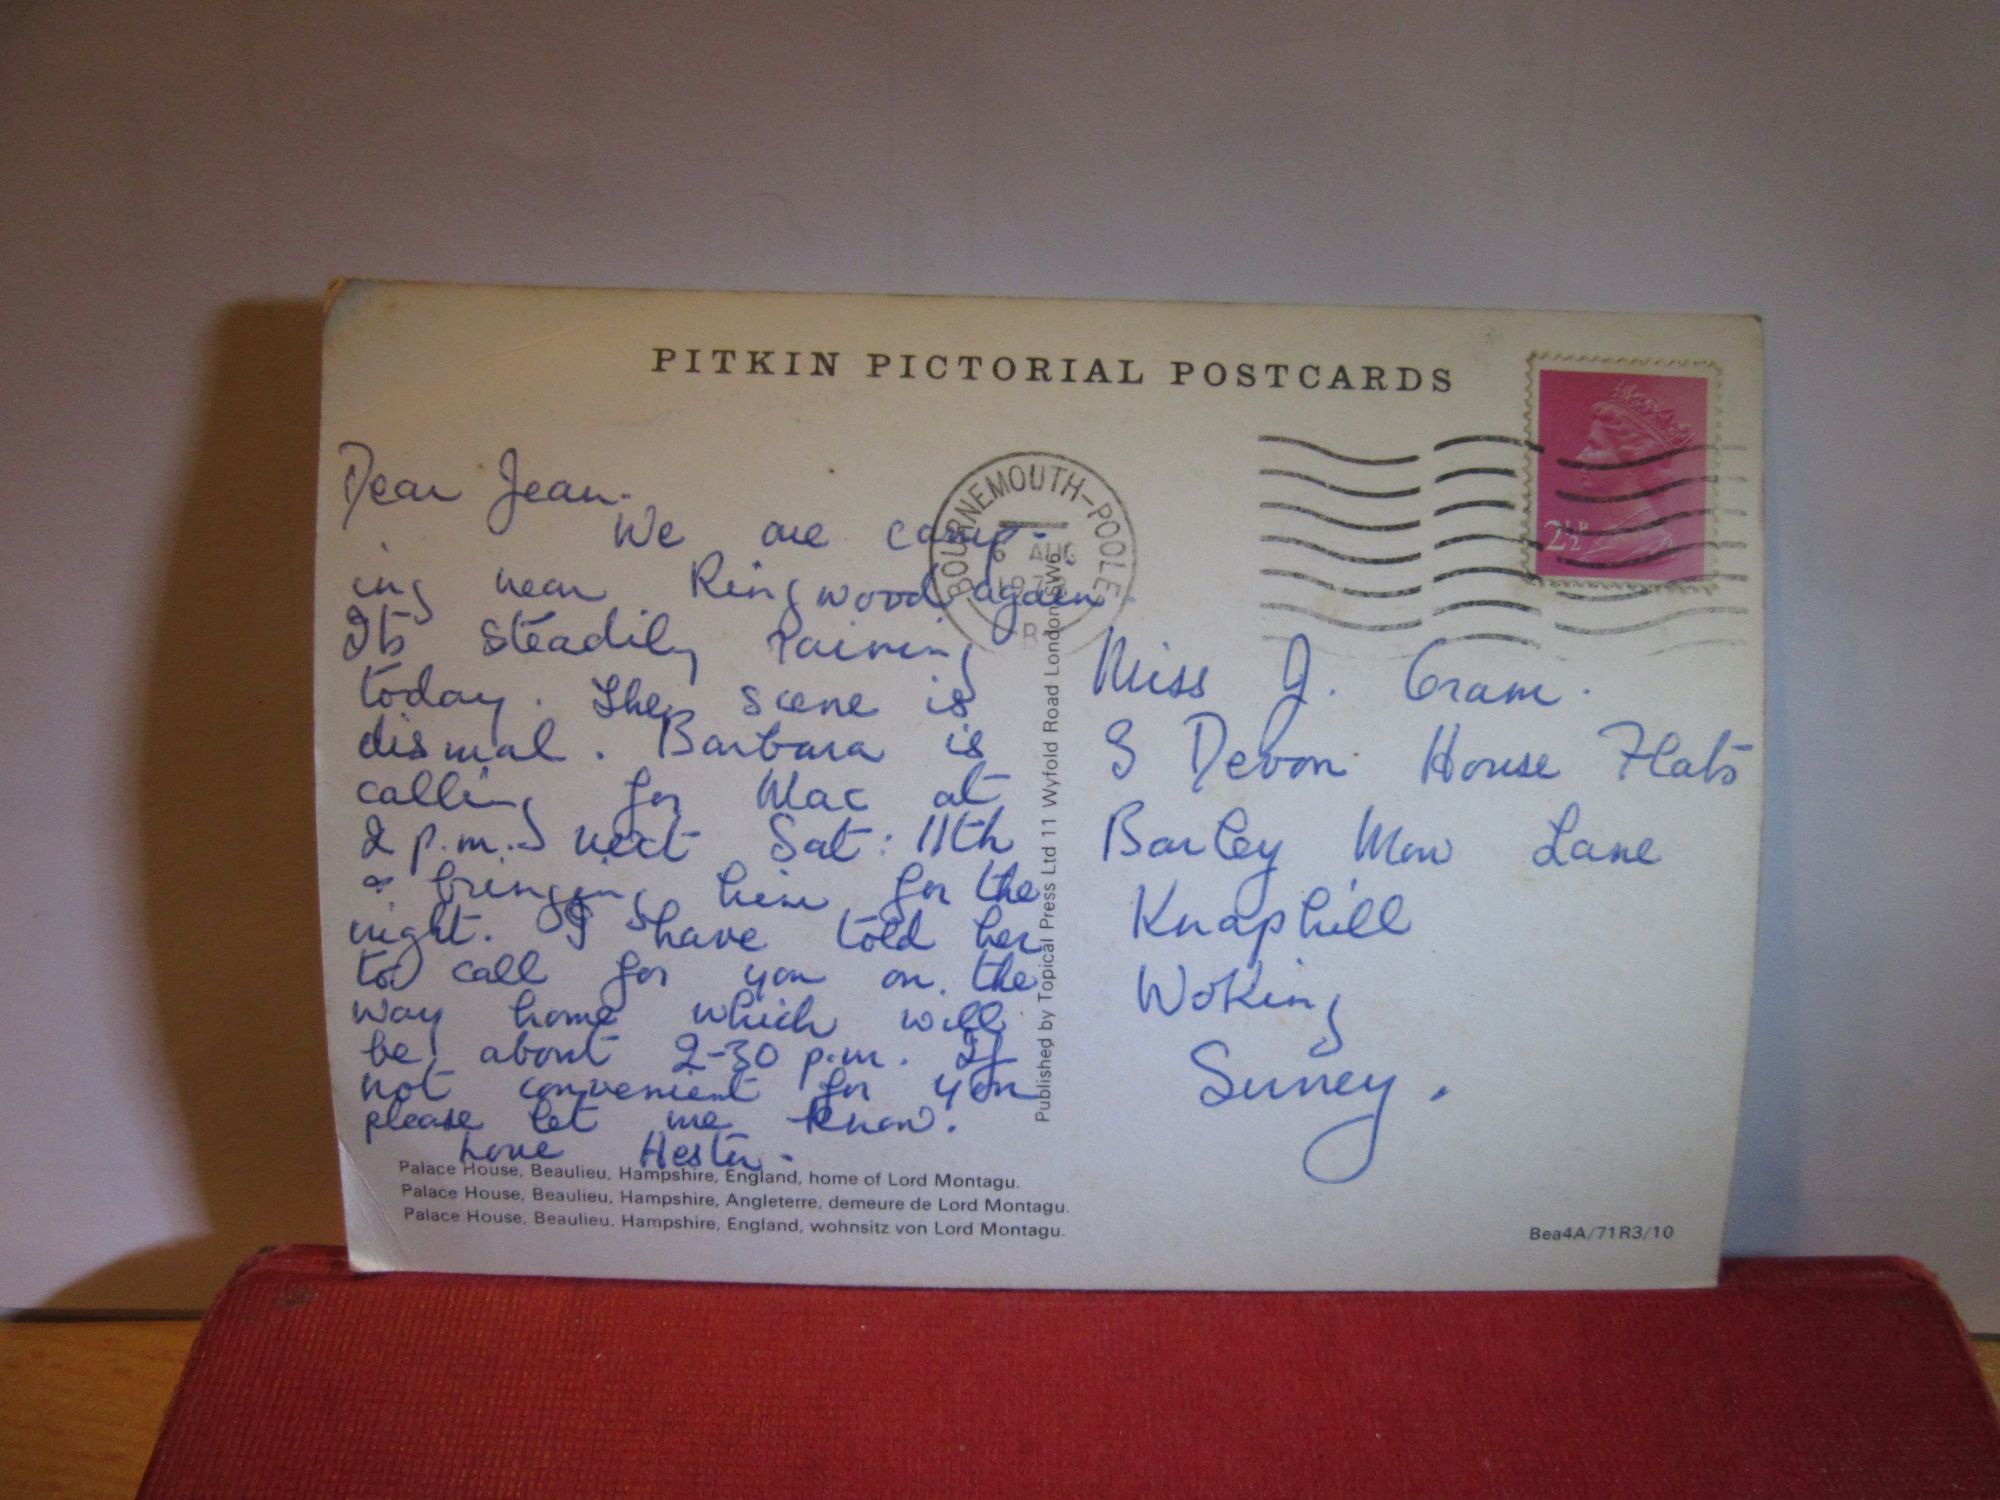 PITKIN PICTORIAL POSTCARDS
Dear Jean.
We are camp-
ing near Ringwood again
Its steadily raining
today. The scene is
dismal. Barbara is
calling for Mac at
2 p.m. next Sat: 11th
& bringing him for the
night. I have told her
to call for you on the
way home which will
be about 2-30 p.m. If
not convenient for you
please let me know.
Love Hester.
Palace House, Beaulieu, Hampshire, England, home of Lord Montagu.
Palace House, Beaulieu, Hampshire, Angleterre, demeure de Lord Montagu.
Palace House, Beaulieu, Hampshire, England, wohnsitz von Lord Montagu.
BOURNEMOUTH-POOLE
6 AUG
1973
Published by Topical Press Ltd 11 Wyfold Road London SW6
2½P
Miss J. Cram.
Devon House Flats
Barley Mow Lane
Knaphill
Woking
Surrey.
Bea4A/71R3/10